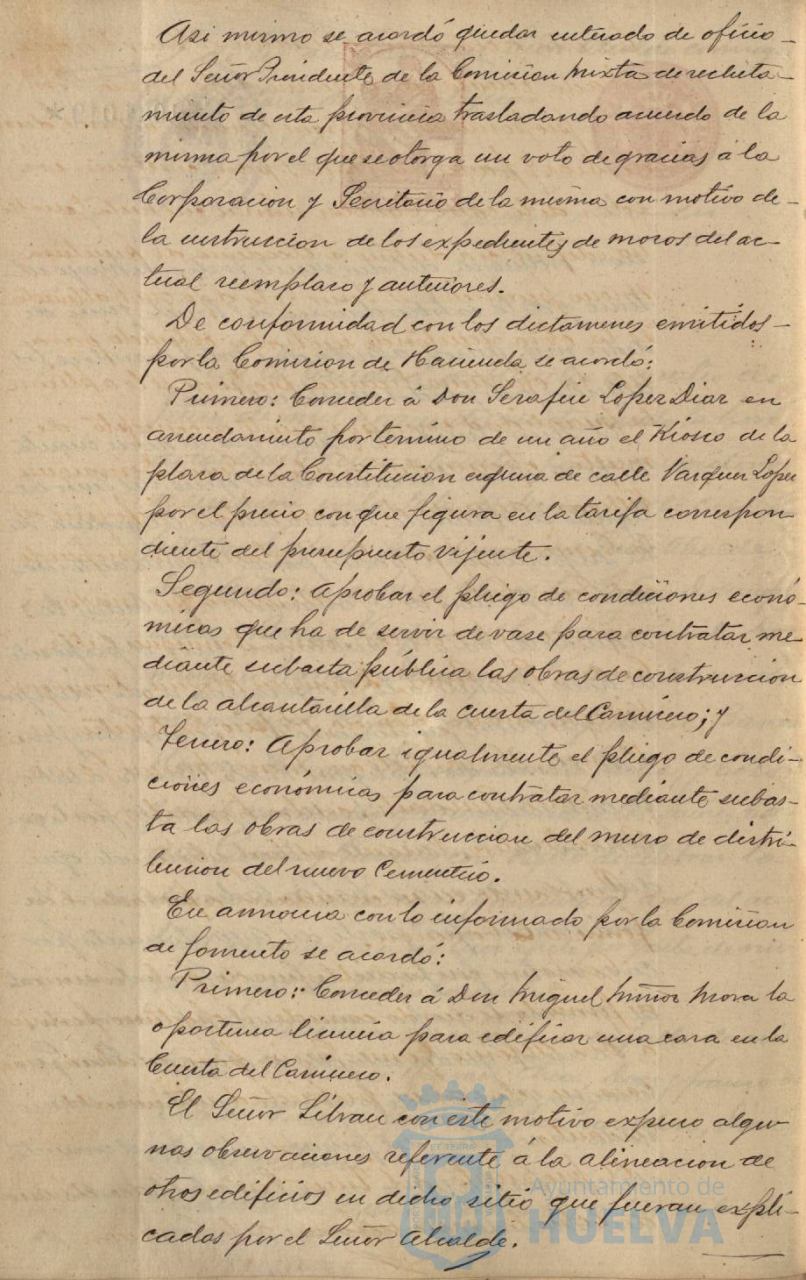 Asi mismo se acordó quedar enterado de oficio
del Señor Presidente de la Comision mixta de recluta-
miento de esta provincia trasladando acuerdo de la
misma por el que se otorga un voto de gracias á la
Corporacion y Secritario de la misma con motivo de
la instruccion de los expedientes de mozos del ac-
tual reemplazo y anteriores.
De conformidad con los dictamenes emitidos
por la Comision de Hacienda se acordó:
Primero: Conceder á Don Serafin Lopez Diaz en
arrendamiento por termino de un año el Kiosco de la
plaza de la Constitucion esquina de calle Vazquez Lopez
por el precio con que figura en la tarifa correspon
diente del presupuesto vijente.
Segundo: Aprobar el pliego de condiciones econó-
micas que ha de servir de vase para contratar me
diante subasta pública las obras de construccion
de la alcantarilla de la cuesta del Carnicero; y
Tercero: Aprobar igualmente el pliego de condi-
ciones económicas para contratar mediante subas-
ta las obras de construccion del muro de distri-
bucion del nuevo Cementerio.
En armonia con lo informado por la Comision
de fomento se acordó:
Primero: Conceder á Don Miguel Muñoz Mora la
oportuna licencia para edificar una casa en la
Cuesta del Carnicero.
El Señor con este motivo expuso algu-
nas observaciones referente á la alineacion de
otros edificios en dicho sitio que fueran expli-
cadas por el Señor Alcalde.
Ayuntamiento de
HUELVA